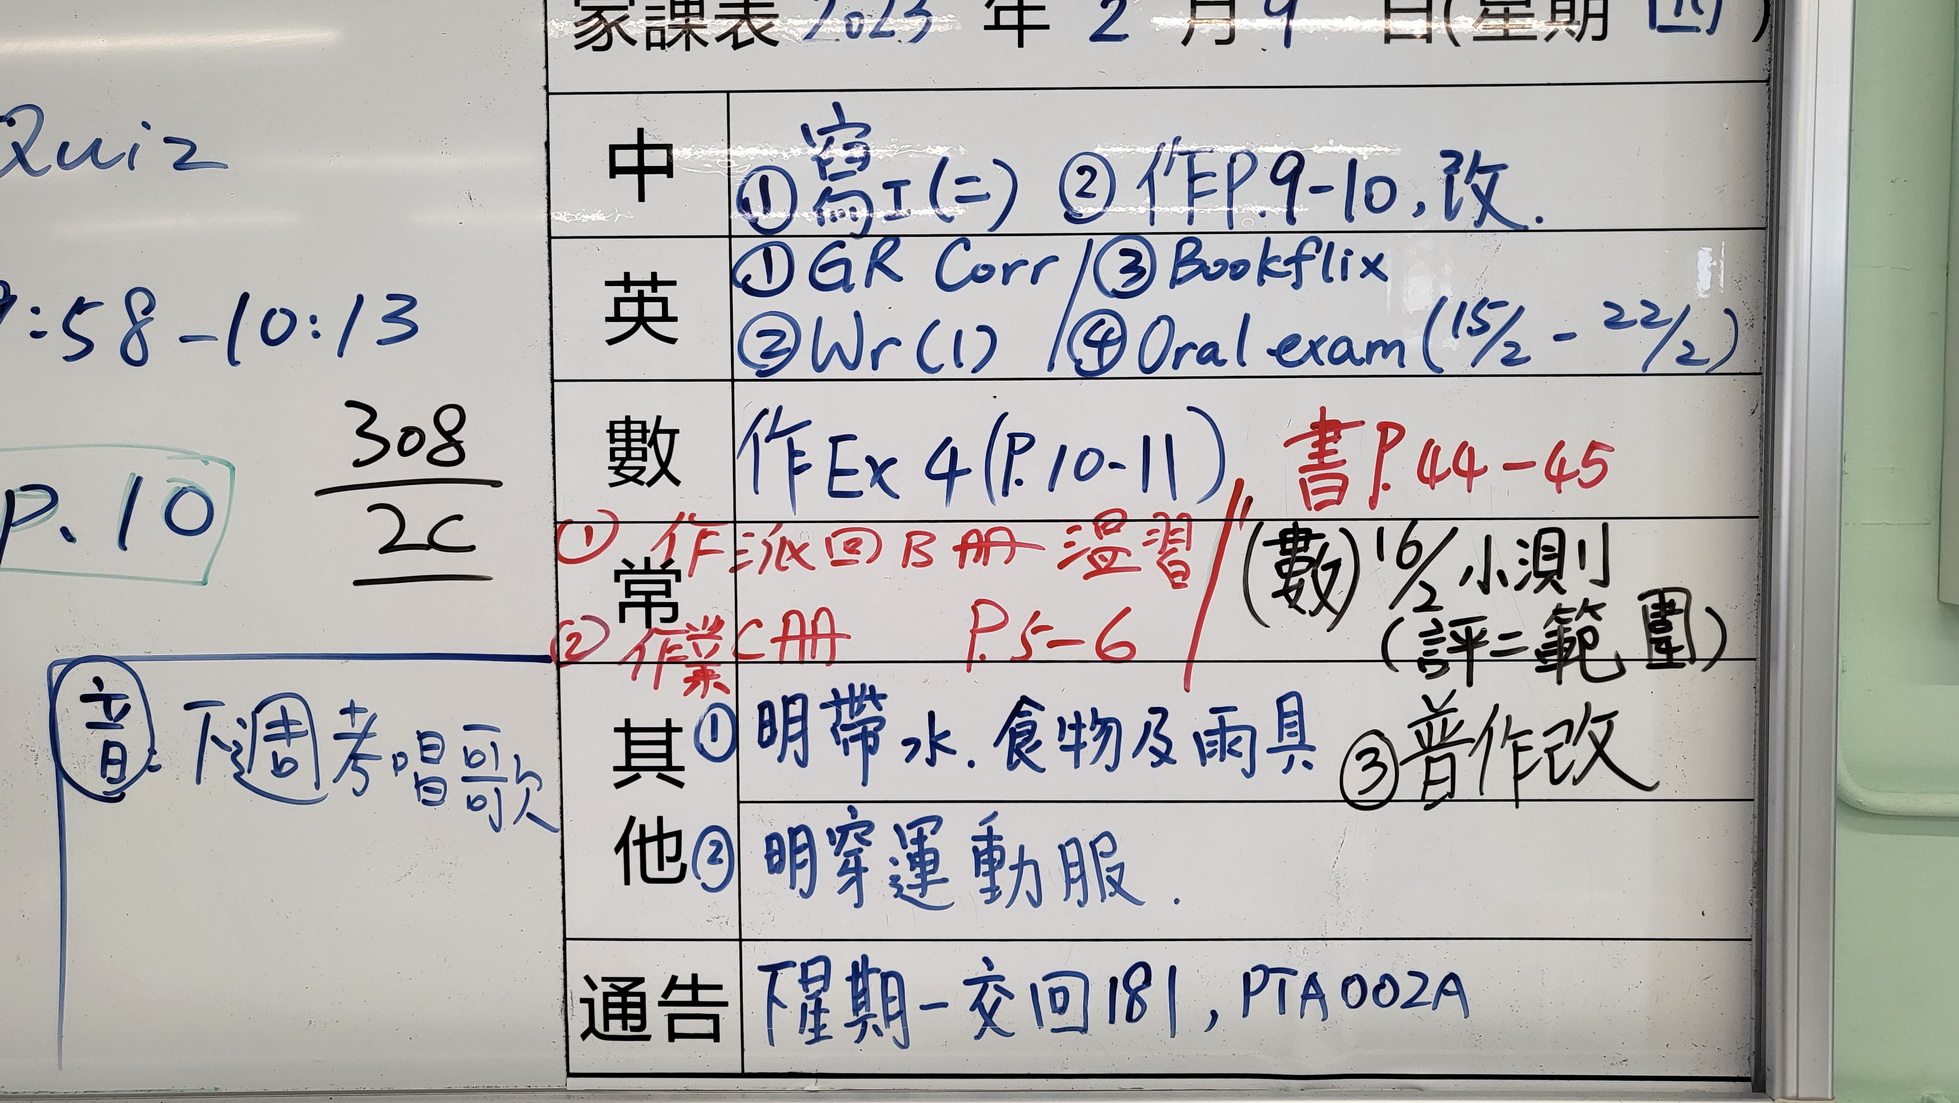 家課表 2023 年 2 月 9 日(星期 四)
Quiz
:58-10:13
P.10
308
2C
音: 下週考唱歌
中
①寫I(二) ②作P.9-10,改.
英
①GR Corr / ③Bookflix
②Wr(1) / ④Oral exam (15/2 - 22/2)
數
作Ex 4(P.10-11) 書P.44-45
常
①作派回B冊溫習
②作業C冊 P.5-6
(數)16/2小測
(評二範圍)
其他
①明帶水.食物及雨具
③普作改
②明穿運動服.
通告
下星期一交回181, PTA002A